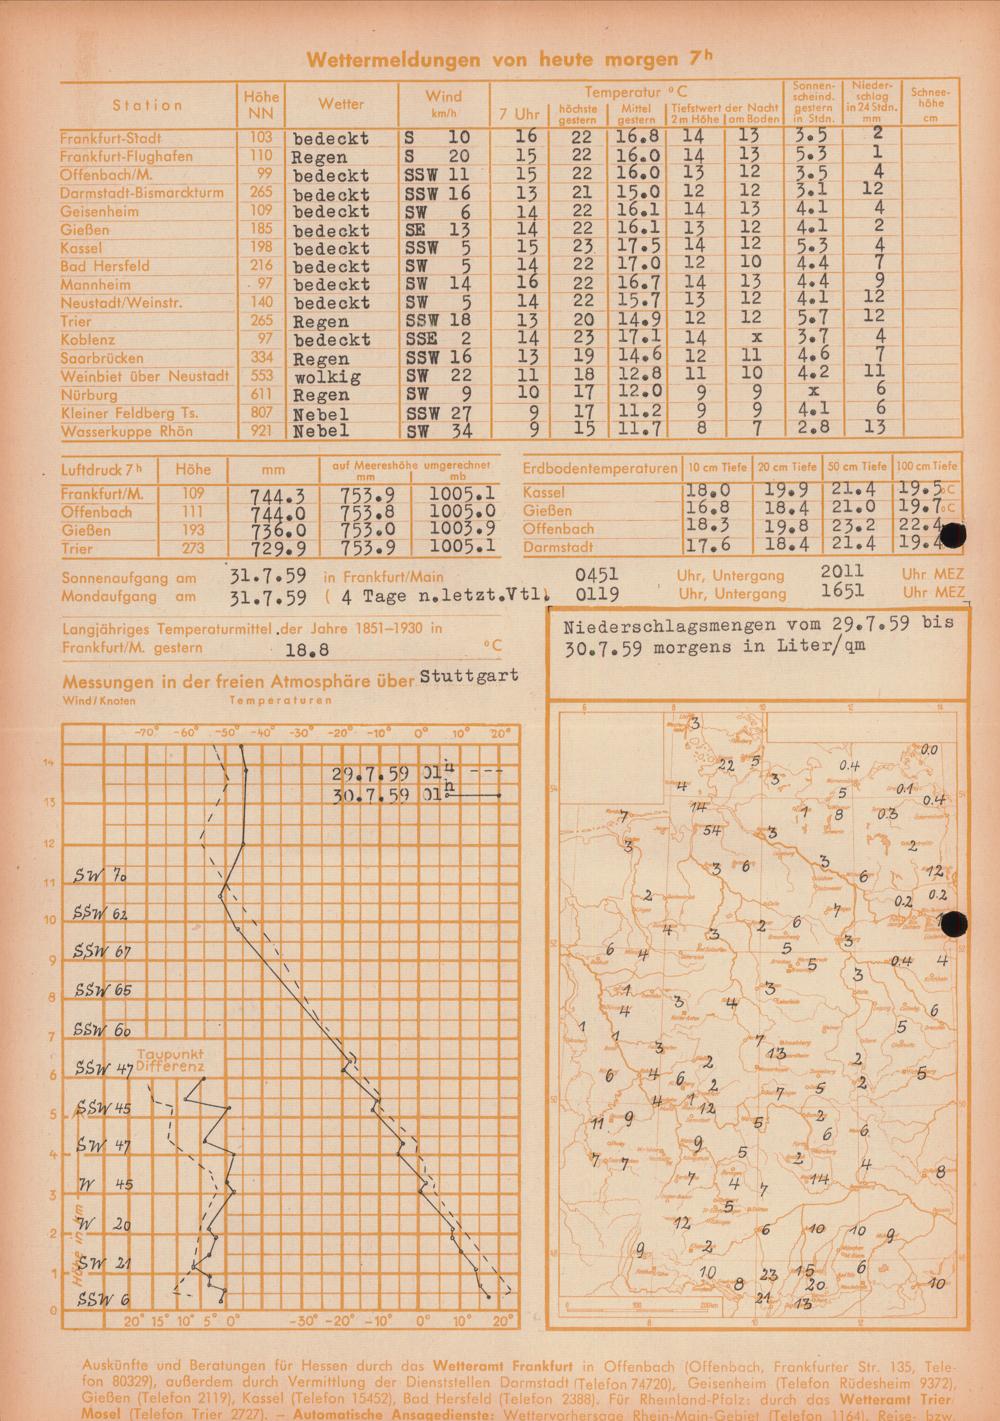 Wettermeldungen von heute morgen 7ʰ
Station Höhe NN Wetter Wind km/h Temperatur °C Sonnen-scheind. gestern in Stdn. Nieder-schlag in 24 Stdn. mm Schnee-höhe cm
7 Uhr höchste gestern Mittel gestern Tiefstwert der Nacht 2 m Höhe am Boden
Frankfurt-Stadt 103 bedeckt S 10 16 22 16.8 14 13 3.5 2
Frankfurt-Flughafen 110 Regen S 20 15 22 16.0 14 13 5.3 1
Offenbach/M. 99 bedeckt SSW 11 15 22 16.0 13 12 3.5 4
Darmstadt-Bismarckturm 265 bedeckt SSW 16 13 21 15.0 12 12 3.1 12
Geisenheim 109 bedeckt SW 6 14 22 16.1 14 13 4.1 4
Gießen 185 bedeckt SE 13 14 22 16.1 13 12 4.1 2
Kassel 198 bedeckt SSW 5 15 23 17.5 14 12 5.3 4
Bad Hersfeld 216 bedeckt SW 5 14 22 17.0 12 10 4.4 7
Mannheim 97 bedeckt SW 14 16 22 16.7 14 13 4.4 9
Neustadt/Weinstr. 140 bedeckt SW 5 14 22 15.7 13 12 4.1 12
Trier 265 Regen SSW 18 13 20 14.9 12 12 5.7 12
Koblenz 97 bedeckt SSE 2 14 23 17.1 14 x 3.7 4
Saarbrücken 334 Regen SSW 16 13 19 14.6 12 11 4.6 7
Weinbiet über Neustadt 553 wolkig SW 22 11 18 12.8 11 10 4.2 11
Nürburg 611 Regen SW 9 10 17 12.0 9 9 x 6
Kleiner Feldberg Ts. 807 Nebel SSW 27 9 17 11.2 9 9 4.1 6
Wasserkuppe Rhön 921 Nebel SW 34 9 15 11.7 8 7 2.8 13
Luftdruck 7ʰ Höhe mm auf Meereshöhe umgerechnet mm mb
Frankfurt/M. 109 744.3 753.9 1005.1
Offenbach 111 744.0 753.8 1005.0
Gießen 193 736.0 753.0 1003.9
Trier 273 729.9 753.9 1005.1
Erdbodentemperaturen 10 cm Tiefe 20 cm Tiefe 50 cm Tiefe 100 cm Tiefe
Kassel 18.0 19.9 21.4 19.5 °C
Gießen 16.8 18.4 21.0 19.7 °C
Offenbach 18.3 19.8 23.2 22.4
Darmstadt 17.6 18.4 21.4 19.4
Sonnenaufgang am 31.7.59 in Frankfurt/Main 0451 Uhr, Untergang 2011 Uhr MEZ
Mondaufgang am 31.7.59 ( 4 Tage n.letzt.Vtl. 0119 Uhr, Untergang 1651 Uhr MEZ
Langjähriges Temperaturmittel der Jahre 1851–1930 in
Frankfurt/M. gestern 18.8 °C
Messungen in der freien Atmosphäre über Stuttgart
Wind/Knoten Temperaturen
-70° -60° -50° -40° -30° -20° -10° 0° 10° 20°
29.7.59 01ʰ
30.7.59 01ʰ
14
13
12
SW 70
11
SSW 62
10
SSW 67
9
SSW 65
8
SSW 60
7
SSW 47
Taupunkt
Differenz
6
SSW 45
5
SW 47
4
W 45
3
W 20
2
SW 21
1
SSW 6
0
Höhe in km
20° 15° 10° 5° 0° -30° -20° -10° 0° 10° 20°
Niederschlagsmengen vom 29.7.59 bis
30.7.59 morgens in Liter/qm
6 8 10 12 14
3
0.0
22 5 0.4
3
4 5 0.1
14 0.4
7 1 8 0.3
54 3
3 2
3 6 3
6 12
2 0.2 0.2
7
4 3 2 6
3
6 4 5
5 0.4 4
3
1 3 4 3
4 6
1 1 5
3 7
13 2
2
6 4 6 2 5
2 7 5
4 1 12
11 9 5 2
6 6
9 5
7 7 2 4
8
7 4 7 14
5
12 6 10 10 9
9 2
6
10 23 15
8 20 10
21 13
0 100 200km
Auskünfte und Beratungen für Hessen durch das Wetteramt Frankfurt in Offenbach (Offenbach, Frankfurter Str. 135, Tele-
fon 80329), außerdem durch Vermittlung der Dienststellen Darmstadt (Telefon 74720), Geisenheim (Telefon Rüdesheim 9372),
Gießen (Telefon 2119), Kassel (Telefon 15452), Bad Hersfeld (Telefon 2388). Für Rheinland-Pfalz: durch das Wetteramt Trier
Mosel (Telefon Trier 2727). — Automatische Ansagedienste: Wettervorhersage Rhein-Main-Gebiet (Telefon 1164), Reise- bzw.